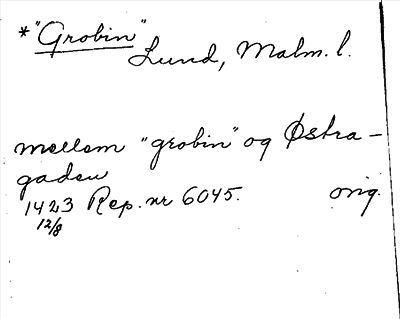 *"Grobin"
Lund, Malm. l.
mellem "grobin" og Østra-
gaden
1423 Rep. nr 6045. orig.
12/8